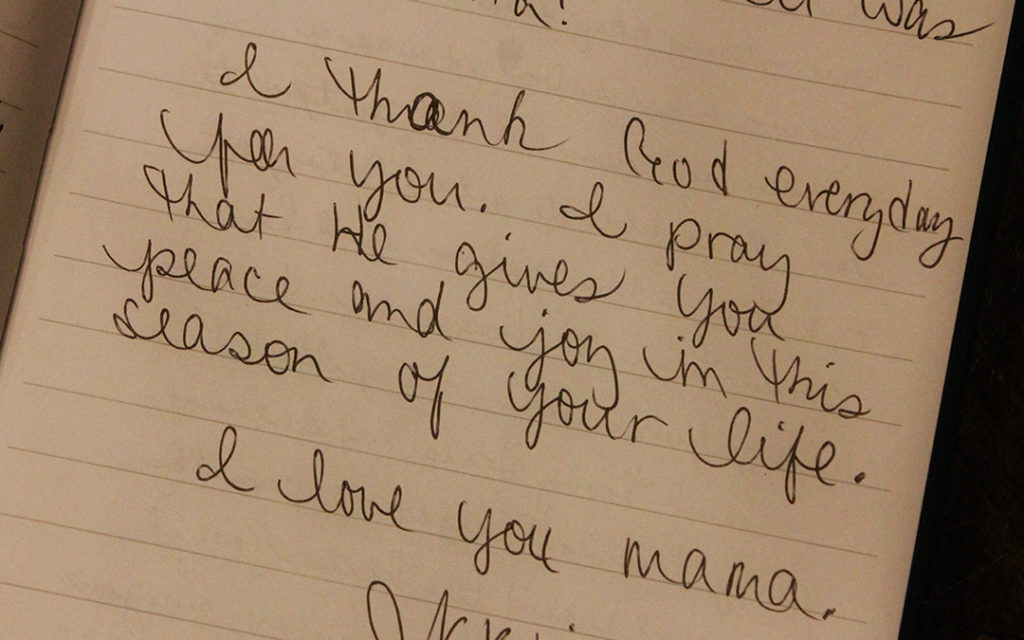 was
I thank God everyday
for you. I pray
that He gives you
peace and joy in this
season of your life.
I love you mama.